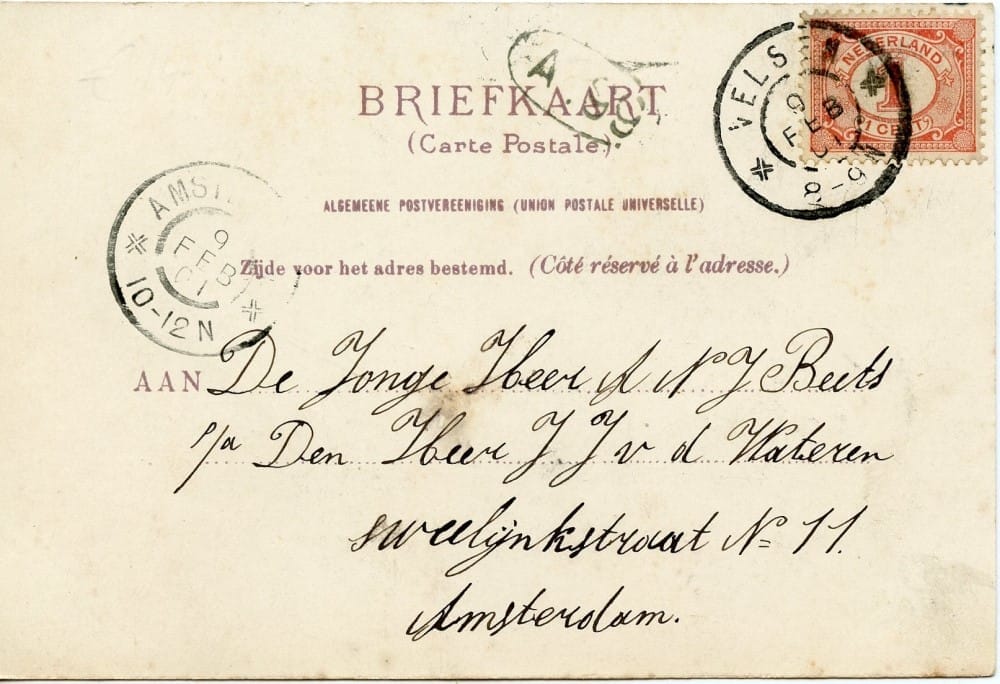 BRIEFKAART
(Carte Postale)
ALGEMEENE POSTVEREENIGING (UNION POSTALE UNIVERSELLE)
Zijde voor het adres bestemd. (Côté réservé à l'adresse.)
VELSEN
9 FEB 01
8-9N
NEDERLAND
1
1 CENT
AMST
9 FEB 01
10-12N
A
AAN De Jonge Heer A N J Beets
p/a Den Heer J J v d Wateren
sweelijnkstraat No 11.
Amsterdam.